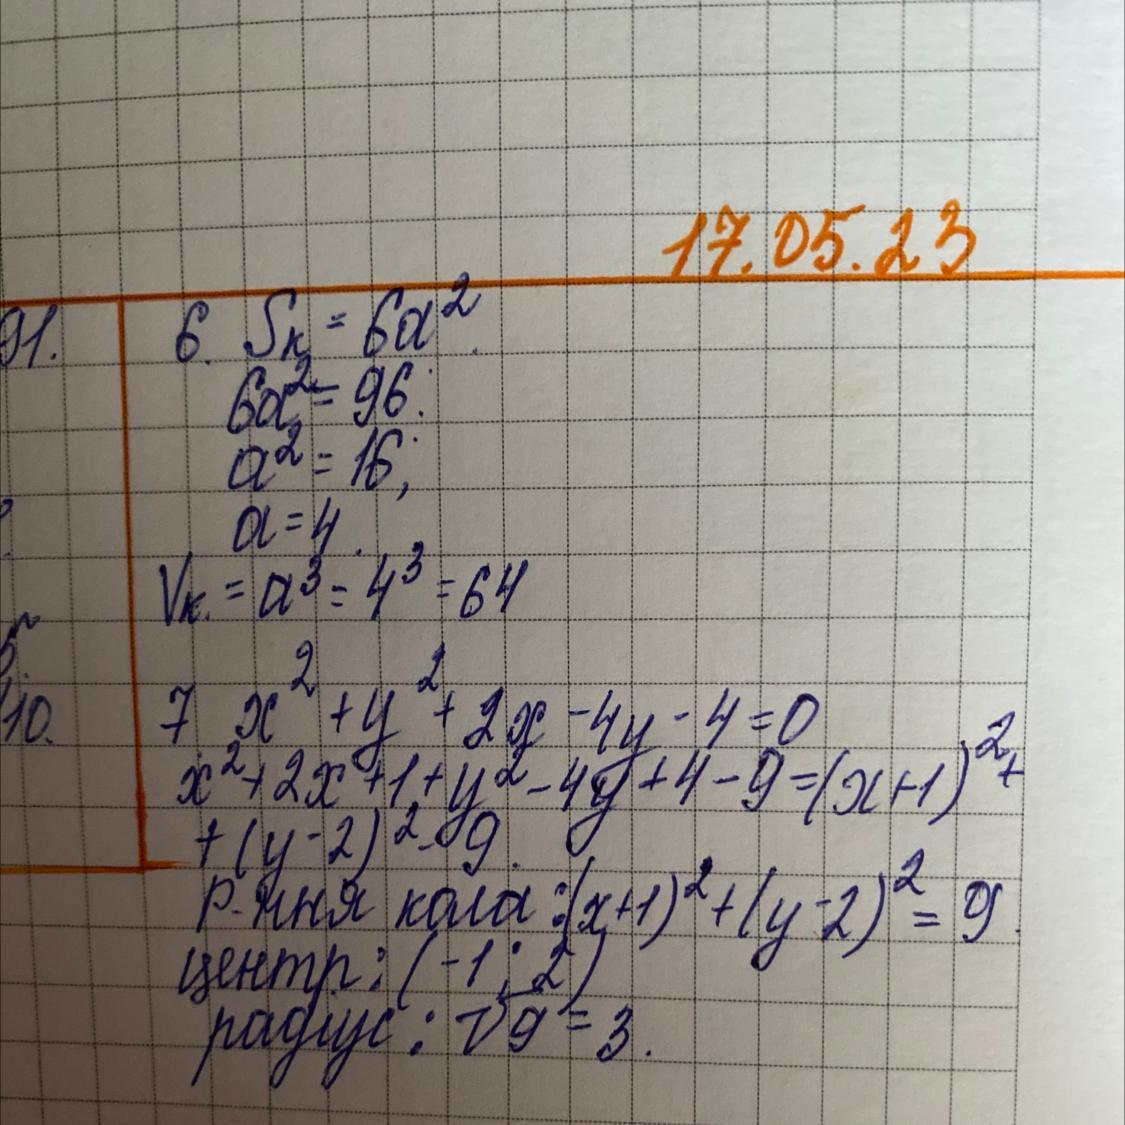 17.05.23
91. 6. Sк = 6a²
6a² = 96:
a² = 16;
a = 4.
Vк. = a³ = 4³ = 64
10. 7 x² + y² + 2x - 4y - 4 = 0
x² + 2x + 1 + y² - 4y + 4 - 9 = (x+1)² +
+ (y-2)² - 9.
р-ння кола: (x+1)² + (y-2)² = 9.
центр: (-1; 2)
радіус: √9 = 3.